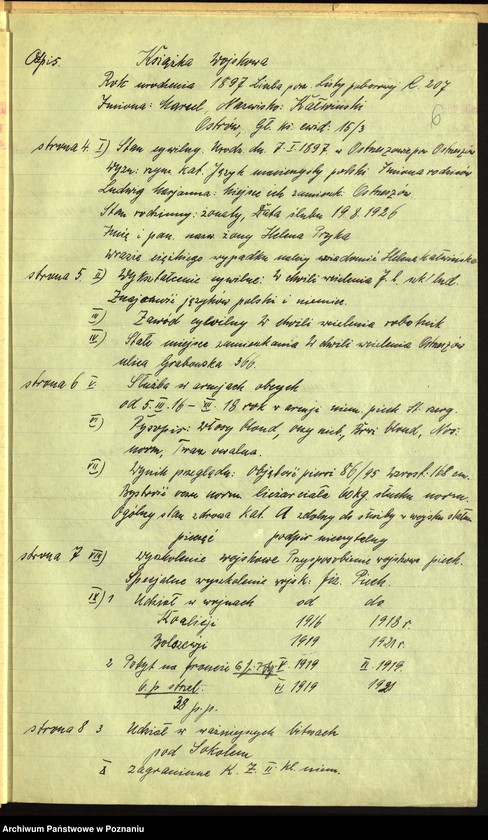 Odpis. Książka Wojskowa
Rok urodzenia 1897 Liczba porz. Listy poborowej L. 207
Imiona: Marcel, Nazwisko: Kaliwiński
Ostrów, Gł. ks. ewid: 15/3
6
strona 4. I) Stan cywilny. Urodz. dn. 7.I.1897 w Ostrzeszowie pow. Ostrzeszów
Wyzn: rzym. kat. Język macierzysty polski Imiona rodziców
Ludwig Marjanna: miejsce ich zamieszk: Ostrzeszów
Stan rodzinny: żonaty, Data ślubu 19.8.1926
Imię i pan. nazw. żony Helena Pryka
W razie ciężkiego wypadku należy zawiadomić Helena Kaliwińska
strona 5. II) Wykształcenie cywilne: W chwili wcielenia 7 kl. szk. lud.
Znajomość języków polski i niemiec.
III) Zawód cywilny W chwili wcielenia robotnik
IV) Stałe miejsce zamieszkania W chwili wcielenia Ostrzeszów
ulica Grabowska 366.
strona 6 V. Służba w armjach obcych
od 5.III.16 – 18 rok w armji niem. piech. St. szerg.
VI) Rysopis: włosy blond, oczy nieb, Brwi blond, Nos:
norm, Twarz owalna.
VII) Wynik przeglądu: Objętość piersi 86/95 Wzrost: 168 cm.
Bystrość oczu norm. Ciężar ciała 60 kg słuchu norm.
Ogólny stan zdrowia Kat. A zdolny do służby w wojsku stałem
pieczęć podpis nieczytelny
strona 7 VIII) wyszkolenie wojskowe Przysposobienie wojskowe piech.
Specjalne wyszkolenie wojsk: Piech.
IX) 1 Udział w wojnach od do
Koalicji 1916 1918 r.
Bolszewji 1919 1921 r.
2 Pobyt na froncie V. 1919 II. 1919
6. p. strzel. VI 1919 1921
38 p.p.
strona 8 3 Udział w ważniejszych bitwach
pod Sokolem
X zagraniczne K. Ż. II. kl. niem.
Archiwum Państwowe w Poznaniu